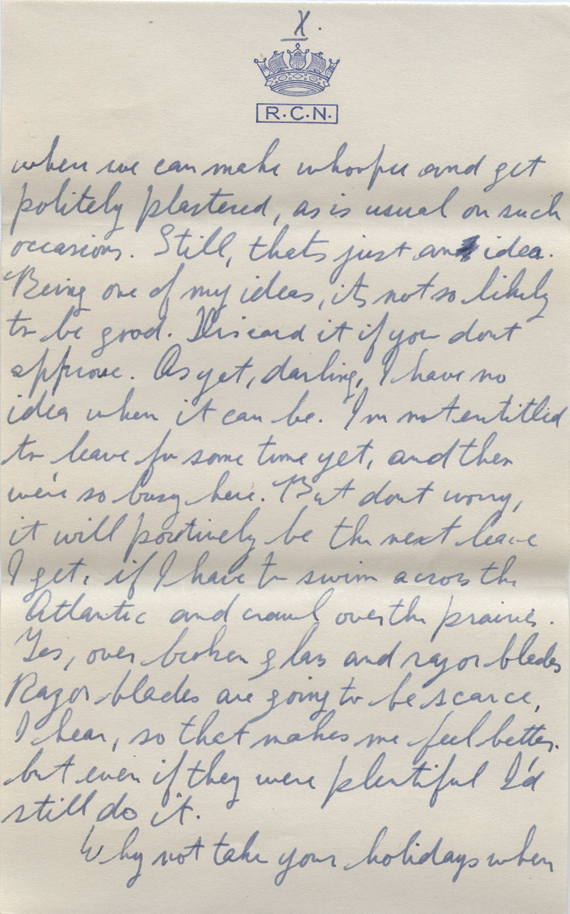 X.
R.C.N.
where we can make whoopee and get
politely plastered, as is usual on such
occasions. Still, thats just an idea.
Being one of my ideas, its not so likely
to be good. Discard it if you dont
approve. As yet, darling, I have no
idea when it can be. I'm not entitled
to leave for some time yet, and then
we're so busy here. But dont worry,
it will positively be the next leave
I get, if I have to swim across the
Atlantic and crawl over the prairies.
Yes, over broken glass and razor blades
Razor blades are going to be scarce,
I hear, so that makes me feel better.
but even if they were plentiful I'd
still do it.
Why not take your holidays when